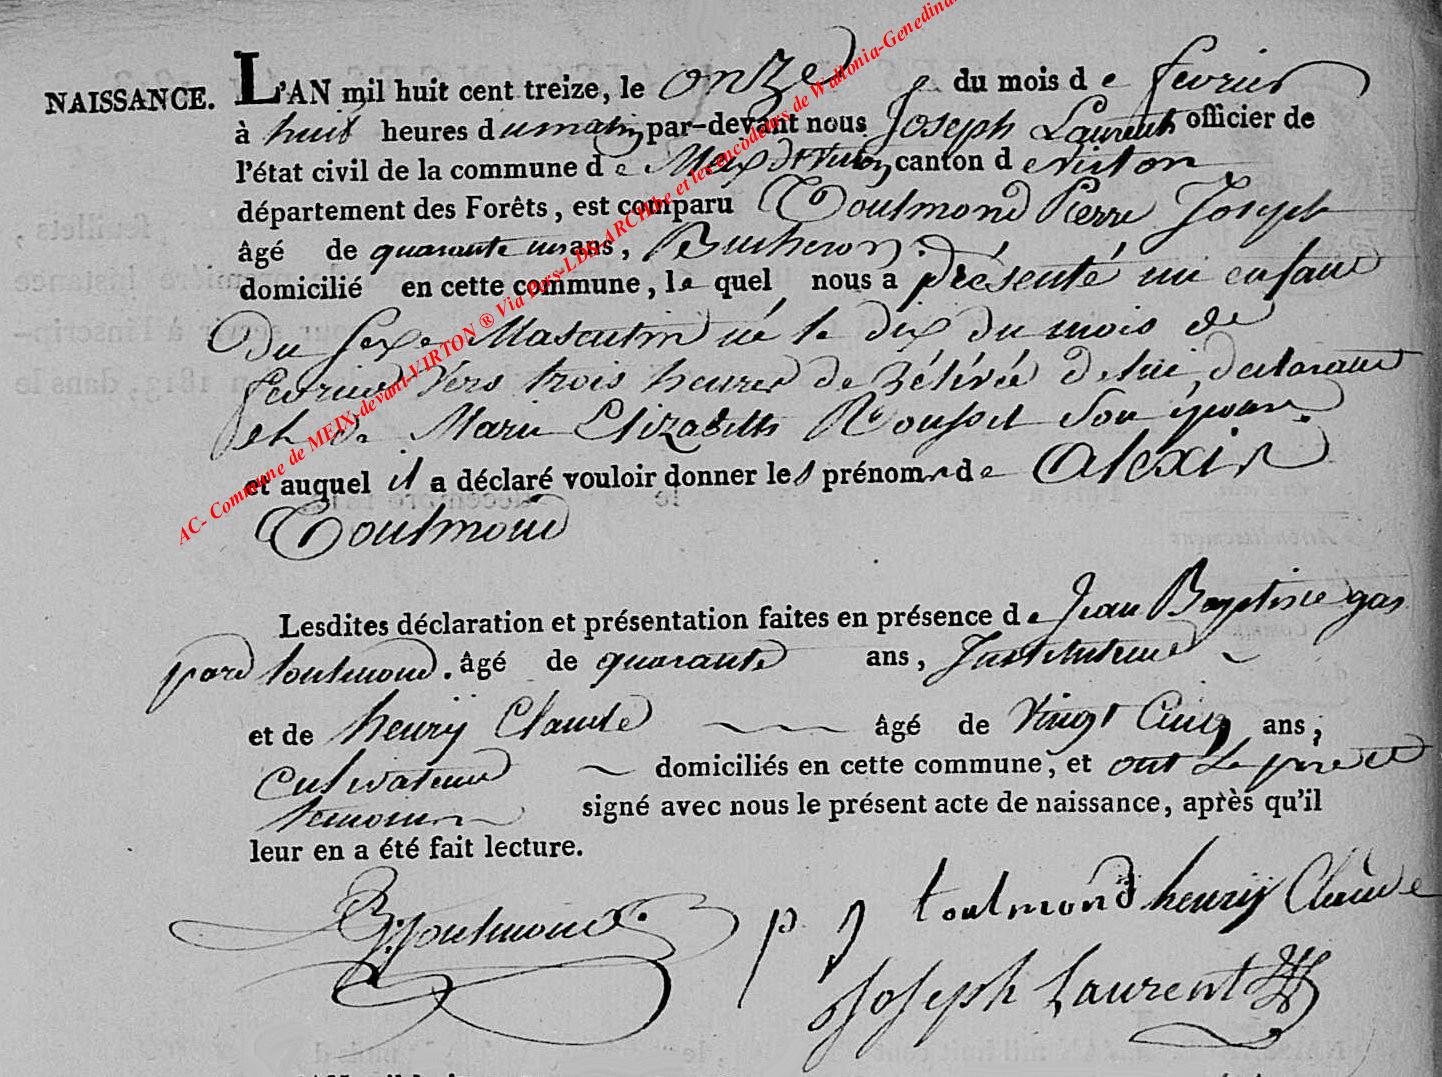 NAISSANCE. L'AN mil huit cent treize, le onze du mois de fevrier
à huit heures du matin par-devant nous Joseph Laurent officier de
l'état civil de la commune de Meix dt virton canton de virton
département des Forêts, est comparu Toulmond Pierre Joseph
âgé de quarante un ans, Bucheron.
domicilié en cette commune, le quel nous a présenté un enfant
Du Sexe Masculin né le dix du mois de
fevrier vers trois heures de rélévée de lui déclarant
et de Marie Elizabeth Rousset Son épouse.
et auquel il a déclaré vouloir donner les prénoms de Alexis
Toulmond
Lesdites déclaration et présentation faites en présence de Jean Baptiste gas
pard toulmond. âgé de quarante ans, Instituteur
et de henrÿ Claude âgé de vingt Cinq ans,
Cultivateur domiciliés en cette commune, et ont Le pere et
temoins signé avec nous le présent acte de naissance, après qu'il
leur en a été fait lecture.
Toulmond. p j toulmond henrÿ Claude
Joseph Laurent
AC- Commune de MEIX-devant-VIRTON ® Via Pars-LDS-ARCHbe et les encodeurs de Wallonia-Genedina